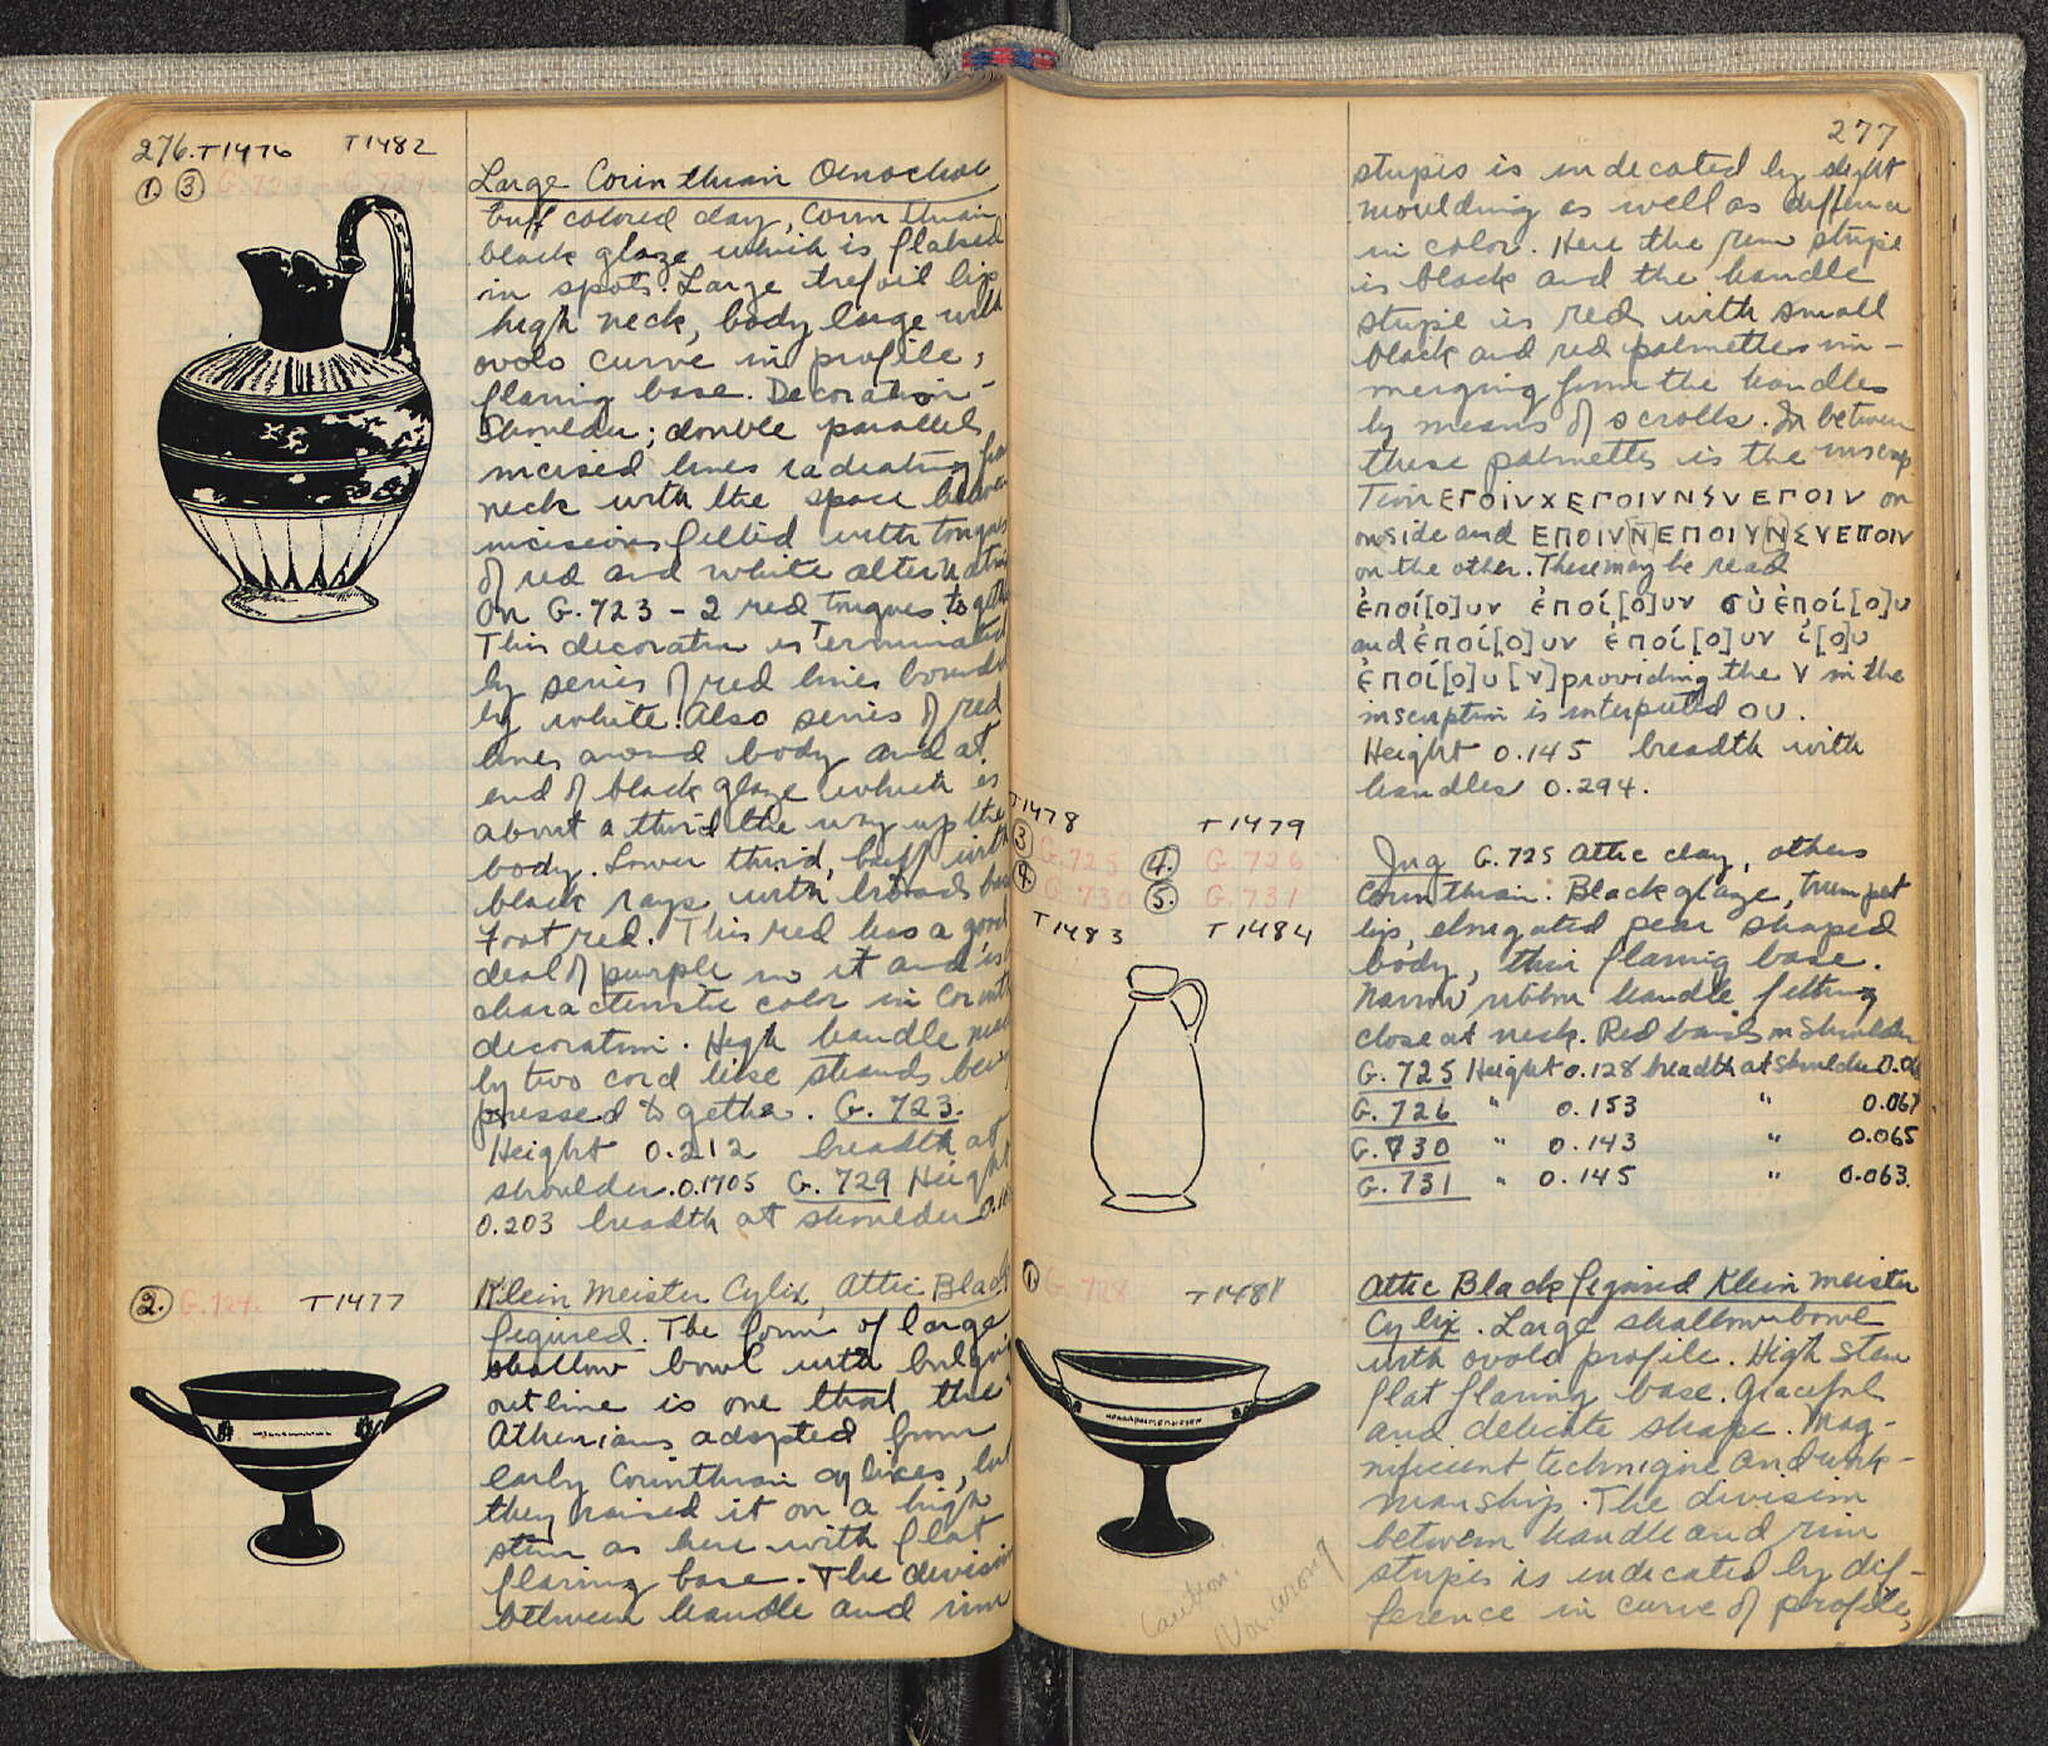 276. T1476 T1482
1. 3 G.723 G.729
Large Corinthian Oinochoe
buff colored clay, Corinthian
black glaze which is flaked
in spots. Large trefoil lip
high neck, body large with
ovolo curve in profile,
flaring base. Decoration -
Shoulder; double parallel
incised lines radiating from
neck with the space between
incisions filled with tongues
of red and white alternating
On G.723 - 2 red tongues together
This decoration is terminated
by series of red lines bounded
by white. Also series of red
lines around body and at
end of black glaze which is
about a third the way up the
body. Lower third, buff with
black rays with broad base
Foot red. This red has a good
deal of purple in it and is
characteristic color in Corinth
decoration. High handle made
by two cord like strands being
pressed together. G. 723.
Height 0.212 breadth at
shoulder. 0.1705 G. 729 Height
0.203 breadth at shoulder
2. G.724. T1477
Klein Meister Cylix, Attic Black
figured. The form of large
shallow bowl with bulging
outline is one that the
Athenians adopted from
early Corinthian cylixes, but
they raised it on a high
stem as here with flat
flaring base. The division
between handle and rim
277
stripes is indicated by slight
moulding as well as difference
in color. Here the rim stripe
is black and the handle
stripe is red with small
black and red palmettes im-
merging from the handles
by means of scrolls. In between
these palmettes is the inscrip
Tion ΕΓΟΙVΧΕΓΟΙVΝSVΕΓΟΙV on
onside and ΕΠΟΙV[N]ΕΠΟΙΥ[N]ΣVΕΠΟΙV
on the other. These may be read
ἐποί[ο]υν ἐποί[ο]υν σὺ ἐποί[ο]υ
and ἐποί[ο]υν ἐποί[ο]υν ἐ[ο]υ
ἐποί[ο]υ[ν] providing the V in the
inscription is interpreted OU.
Height 0.145 breadth with
handles 0.294.
T1478 T1479
3 G.725 4. G.726
4. G.730 5. G.731
T1483 T1484
Jug G.725 Attic clay, others
Corinthian. Black glaze, trumpet
lip, elongated pear shaped
body, thin flaring base.
Narrow ribbon handle fitting
close at neck. Red bands on shoulder
G. 725 Height 0.128 breadth at shoulder
G. 726 " 0.153 " 0.067
G. 730 " 0.143 " 0.065
G. 731 " 0.145 " 0.063.
1. G.728 T1481
Attic Black figured Klein meister
Cylix. Large shallow bowl
with ovolo profile. High stem
flat flaring base. Graceful
and delicate shape. Mag-
nificient technique and work-
manship. The division
between handle and rim
stripes is indicated by dif-
ference in curve of profile,
Caution.
No. wrong